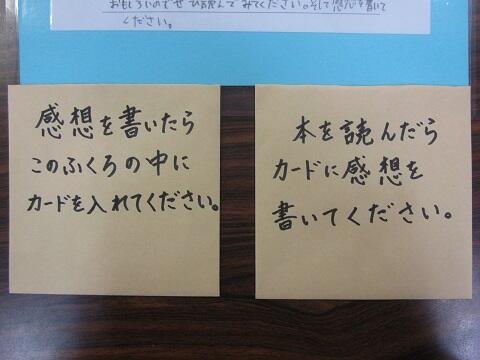 おもしろいのでぜひ読んでみてください。そして感想を書いて
ください。
感想を書いたら
このふくろの中に
カードを入れてください。
本を読んだら
カードに感想を
書いてください。